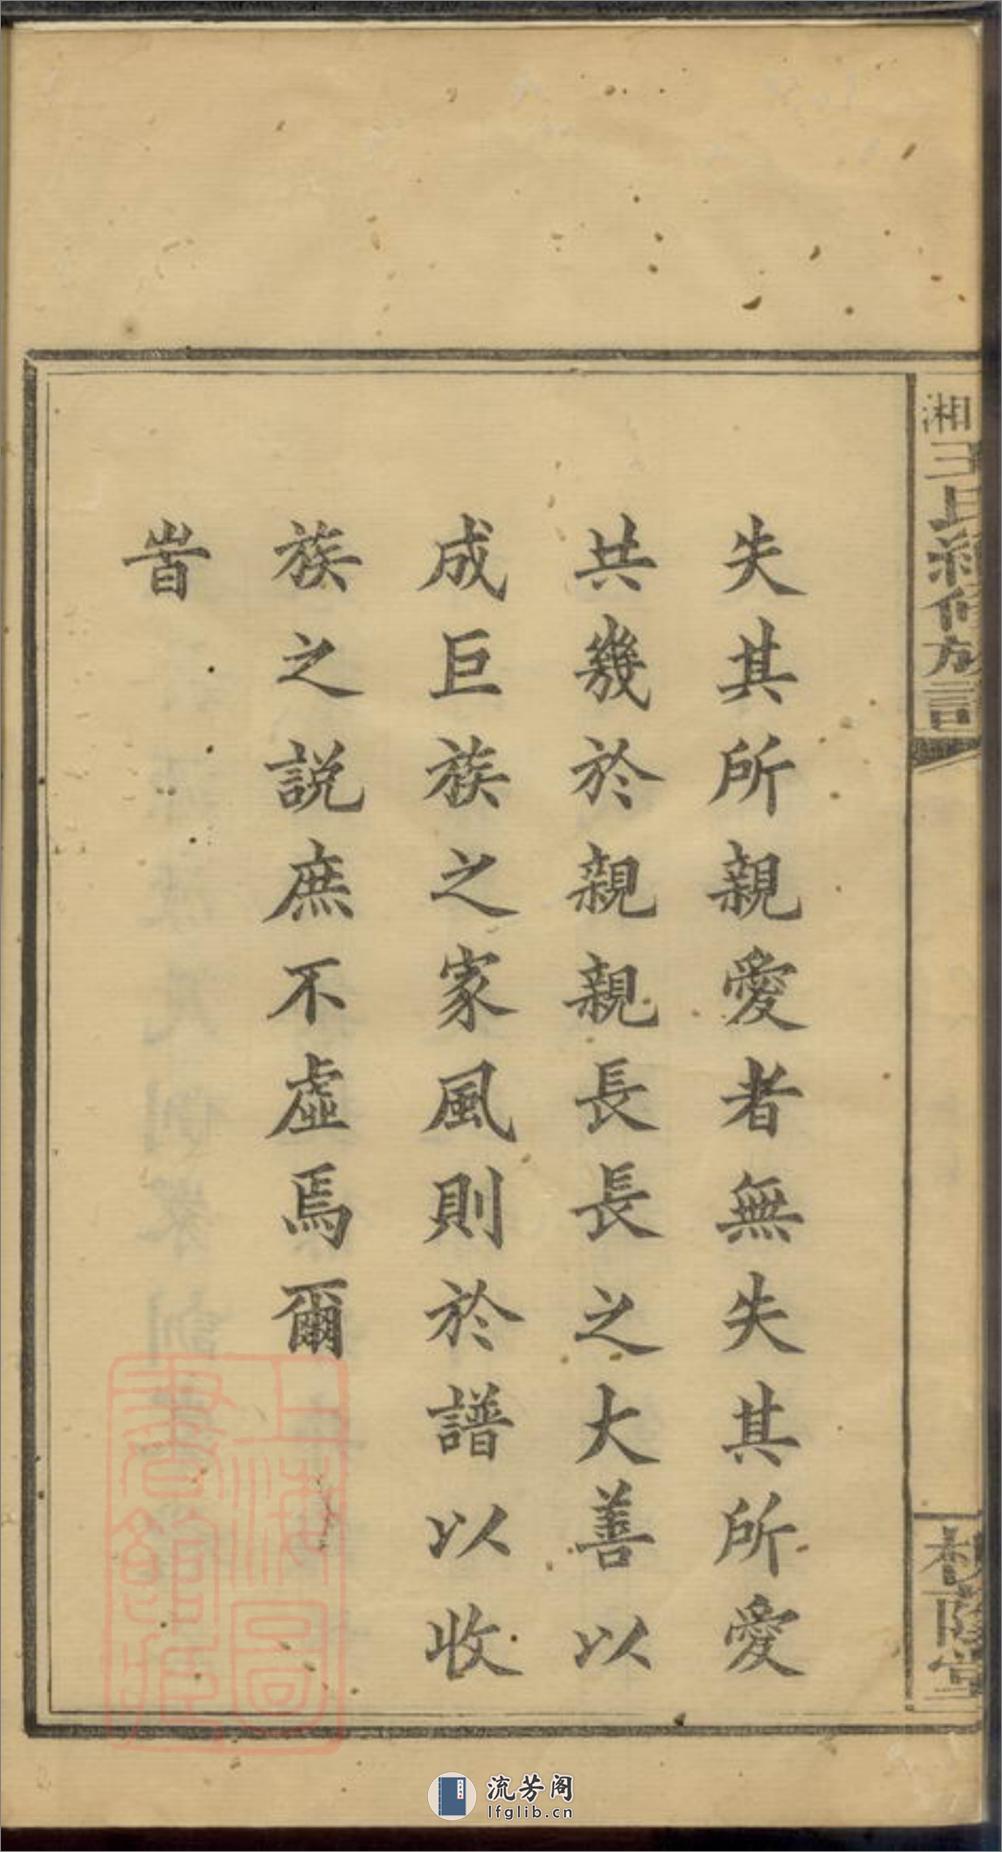 失其所親愛者無失其所愛
共幾於親親長長之大善以
成巨族之家風則於譜以收
族之說庶不虛焉爾
旹
湘
王氏續修族譜
蔭堂
上海圖書館藏
流芳阁
lfglib.cn